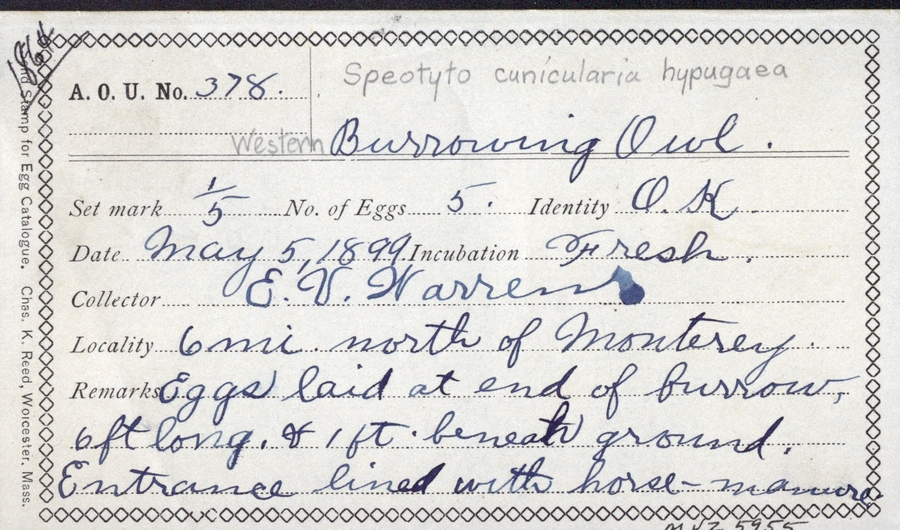 A. O. U. No. 378.
Speotyto cunicularia hypugaea
Western Burrowing Owl.
Set mark 1/5 No. of Eggs 5. Identity O. K.
Date May 5, 1899 Incubation Fresh.
Collector E. V. Warren
Locality 6 mi. north of Monterey.
Remarks Eggs laid at end of burrow,
6 ft long, & 1 ft. beneath ground.
Entrance lined with horse-manure
Stamp for Egg Catalogue. Chas. K. Reed, Worcester, Mass.
MVZ 5955